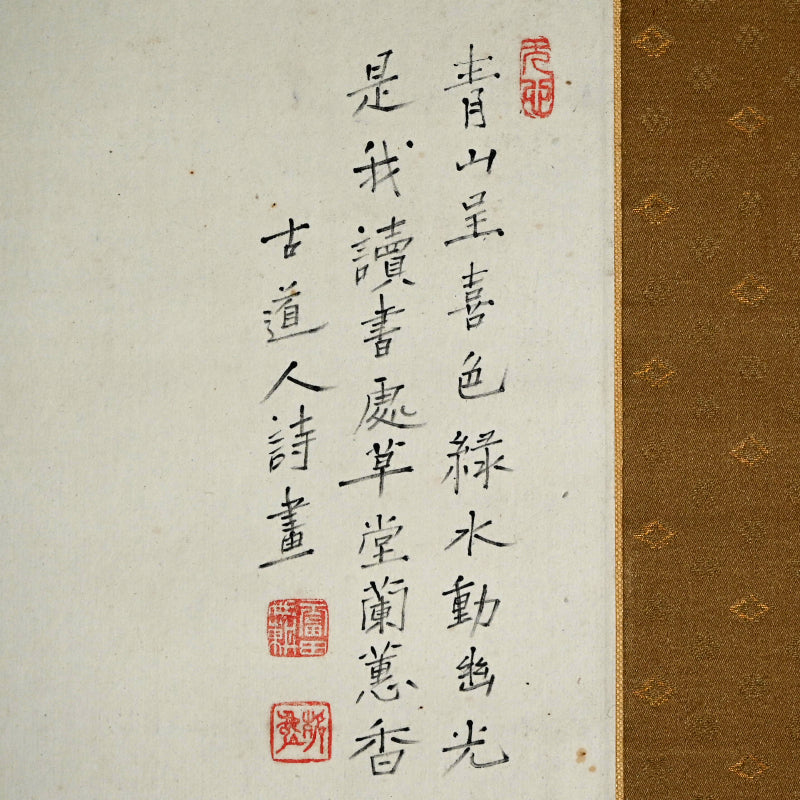 青山呈喜色綠水動幽光
是我讀書處草堂蘭蕙香
古道人詩畫